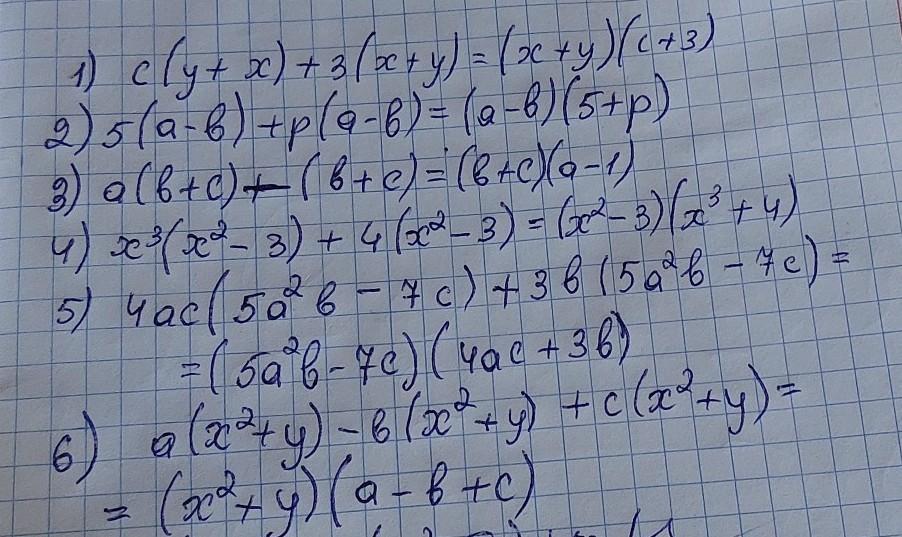 1) c(y+x)+3(x+y)=(x+y)(c+3)
2) 5(a-b)+p(a-b)=(a-b)(5+p)
3) a(b+c)-(b+c)=(b+c)(a-1)
4) x³(x²-3)+4(x²-3)=(x²-3)(x³+4)
5) 4ac(5a²b-7c)+3b(5a²b-7c)=
=(5a²b-7c)(4ac+3b)
6) a(x²+y)-b(x²+y)+c(x²+y)=
=(x²+y)(a-b+c)